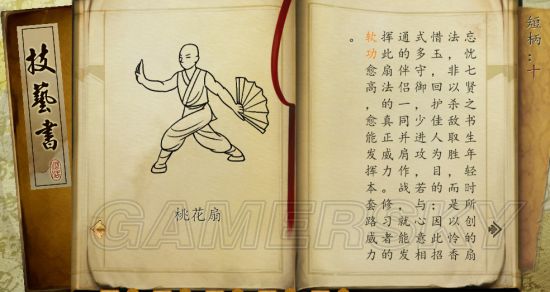 短柄:十
忘忧七贤之书生年轻时所创的扇
法,非以杀敌取胜,而是以怜香
惜玉,回护佳人为目的;因此招
式多守御,少进攻,若与心意相
通的伴侣一同并肩作战,就能发
挥此扇法的真正威力。修习者的
软功愈高,愈能发挥本套路威力
。
桃花扇
技藝書
GAMERSKY